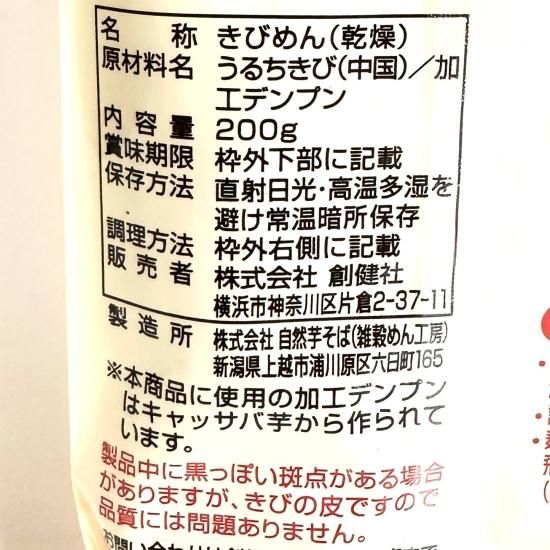 名称 きびめん(乾燥)
原材料名 うるちきび(中国)/加
工デンプン
内容量 200g
賞味期限 枠外下部に記載
保存方法 直射日光・高温多湿を
避け常温暗所保存
調理方法 枠外右側に記載
販売者 株式会社 創健社
横浜市神奈川区片倉2-37-11
製造所 株式会社 自然芋そば(雑穀めん工房)
新潟県上越市浦川原区六日町165
※本商品に使用の加工デンプン
はキャッサバ芋から作られて
います。
製品中に黒っぽい斑点がある場合
がありますが、きびの皮ですので
品質には問題ありません。